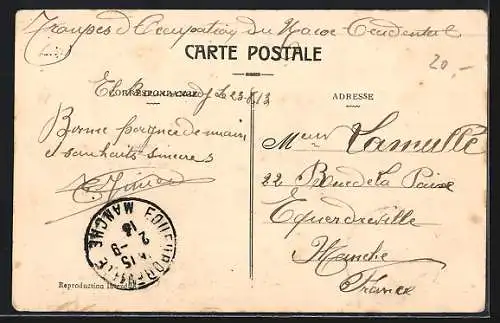 Troupes d'Occupation du Maroc Occidental
CARTE POSTALE
20,-
CORRESPONDANCE
El le 23.8.13
ADRESSE
Bonne poignée de main
et souhaits sincères
Meur Lamelle
22 Rue de la Paix
Equerdreville
Manche
France
EQUEURDREVILLE
MANCHE
15
2-9
13
Reproduction Interdite